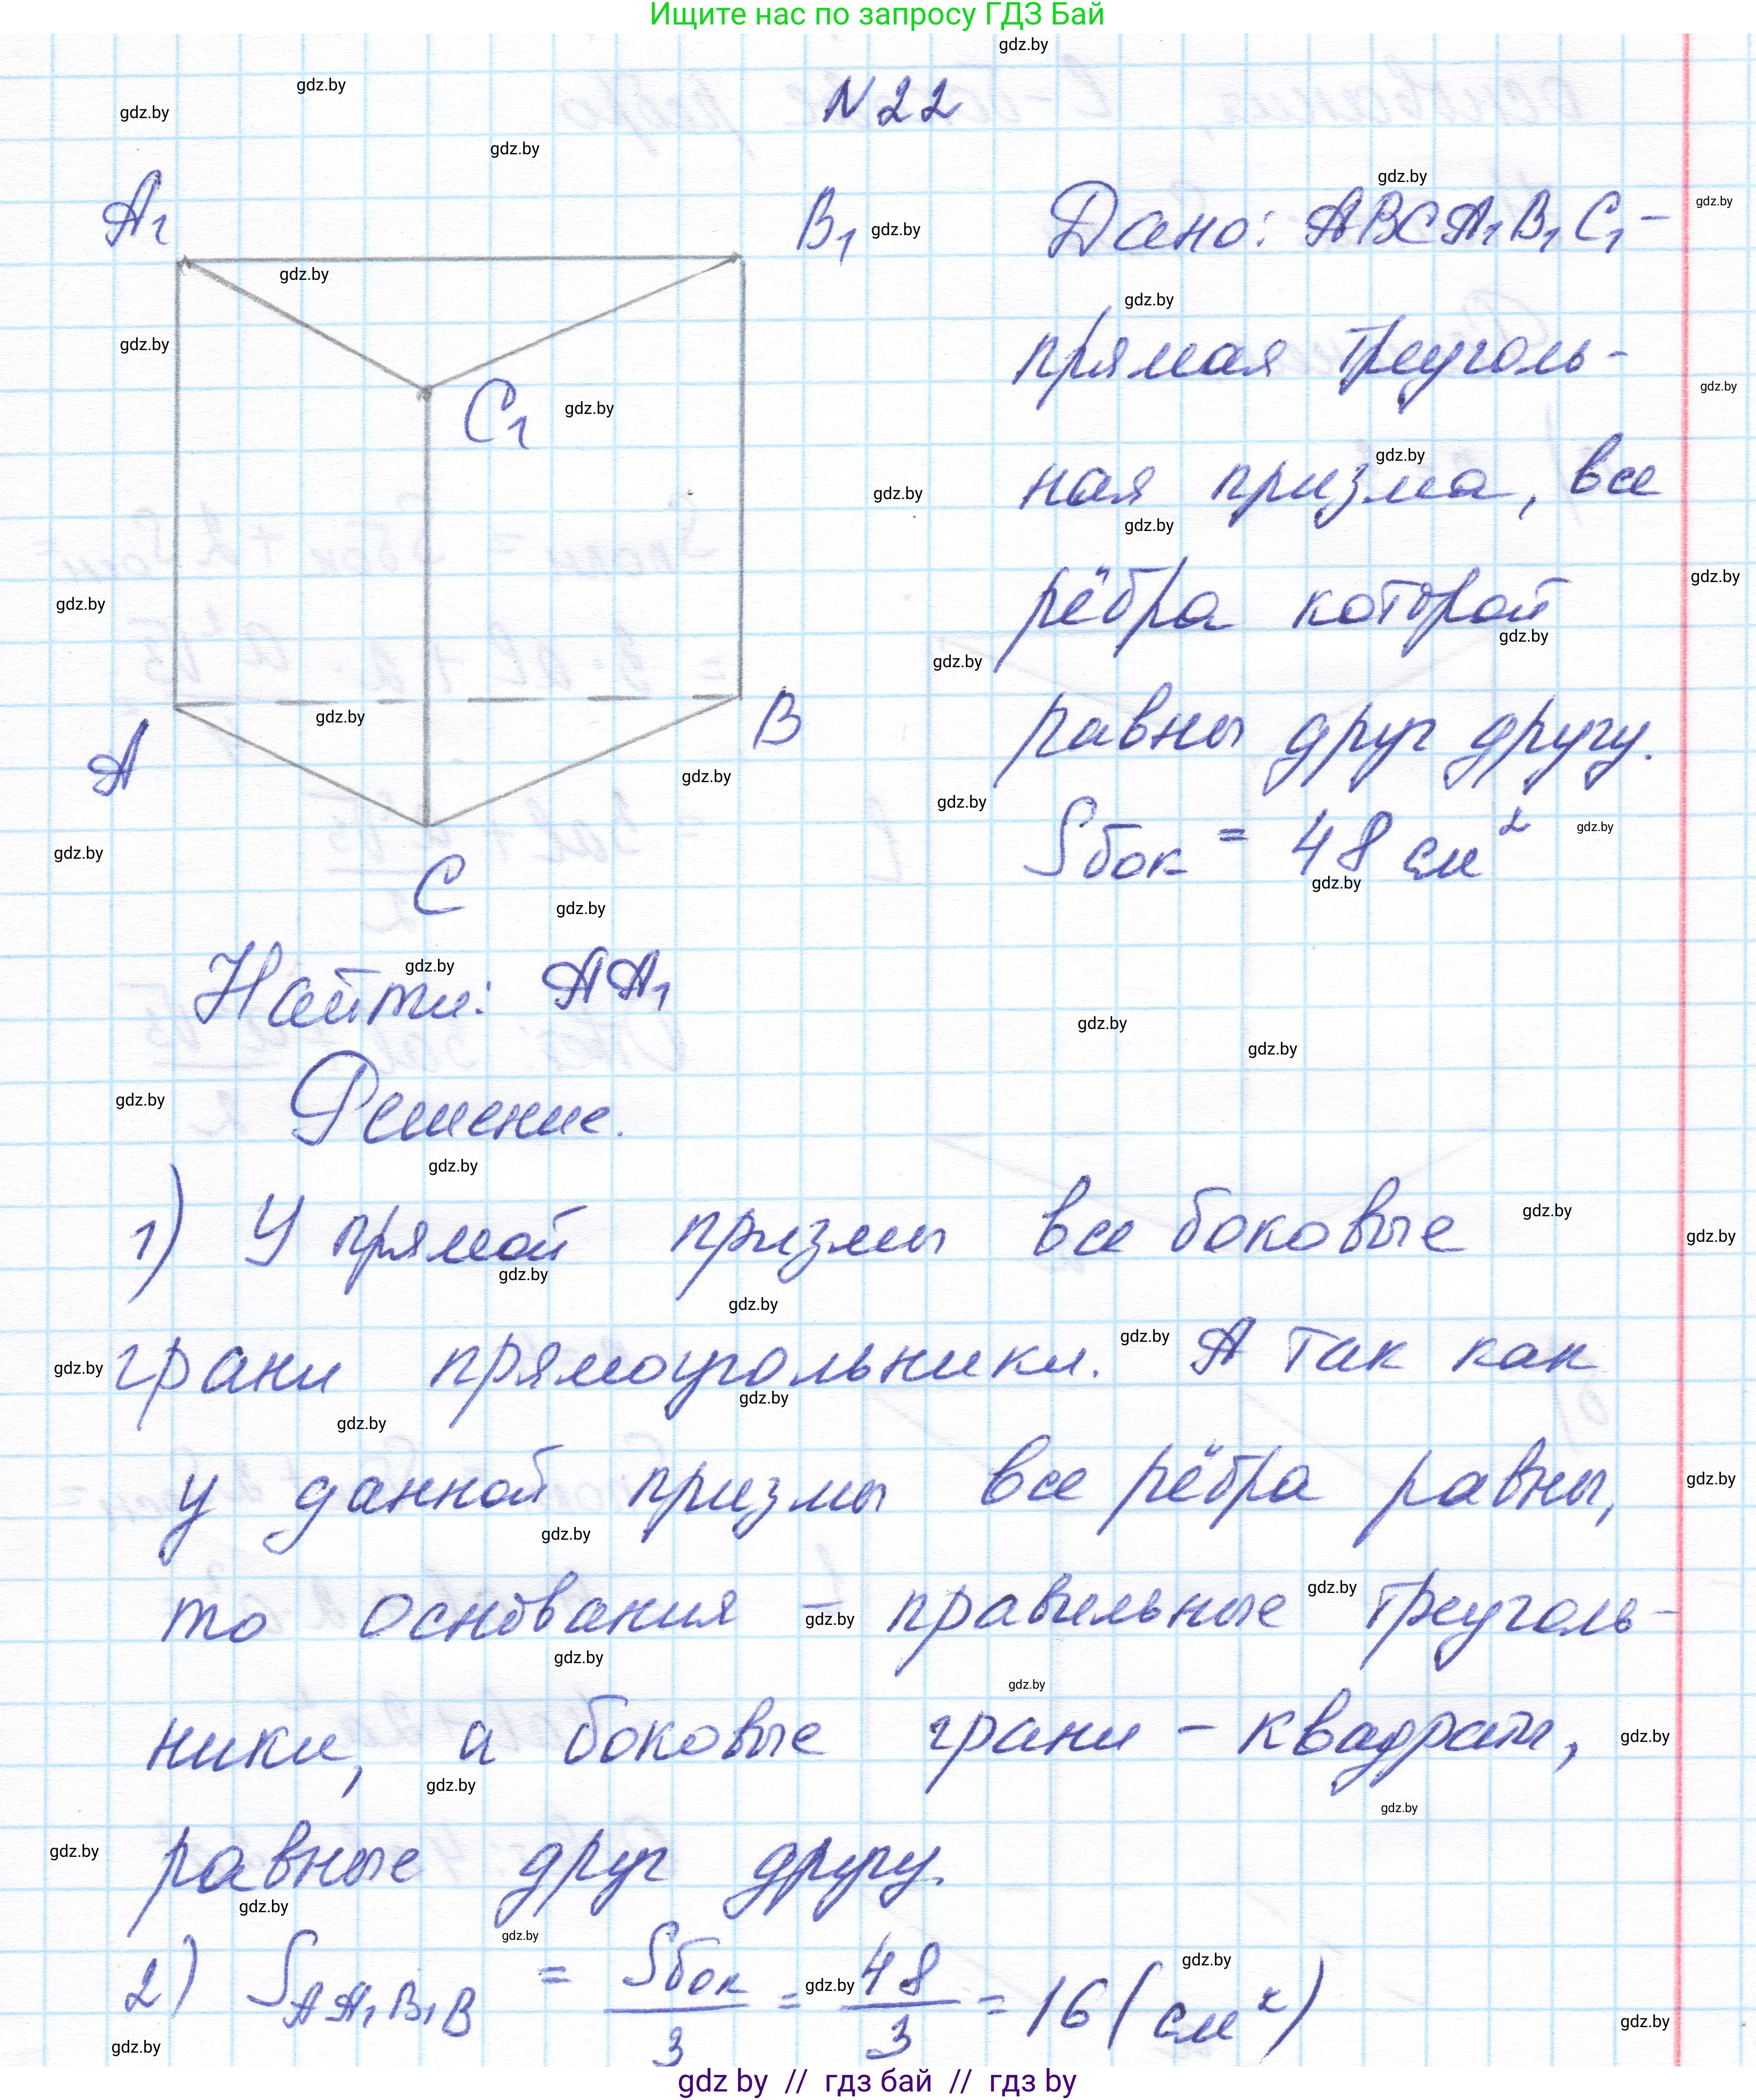 Ищите нас по запросу ГДЗ Бай
N22
A1
B1
C1
A
B
C
Дано: ABCA1B1C1 –
прямая треуголь-
ная призма, все
рёбра которой
равны друг другу.
Sбок = 48 см²
Найти: AA1
Решение.
1) У прямой призмы все боковые
грани прямоугольники. А так как
у данной призмы все рёбра равны,
то основания – правильные треуголь-
ники, а боковые грани – квадраты,
равные друг другу.
2) S AA1B1B = Sбок/3 = 48/3 = 16 (см²)
gdz by // гдз бай // гдз by